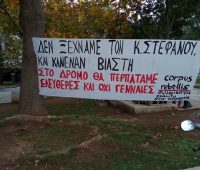 ΔΕΝ ΞΕΧΝΑΜΕ ΤΟΝ Κ.ΣΤΕΦΑΝΟΥ.
ΚΑΙ ΚΑΝΕΝΑΝ ΒΙΑΣΤΗ
ΣΤΟ ΔΡΟΜΟ ΘΑ ΠΕΡΠΑΤΑΜΕ
ΕΛΕΥΘΕΡΕΣ ΚΑΙ ΟΧΙ ΓΕΝΝΑΙΕΣ
corpus
rebellis